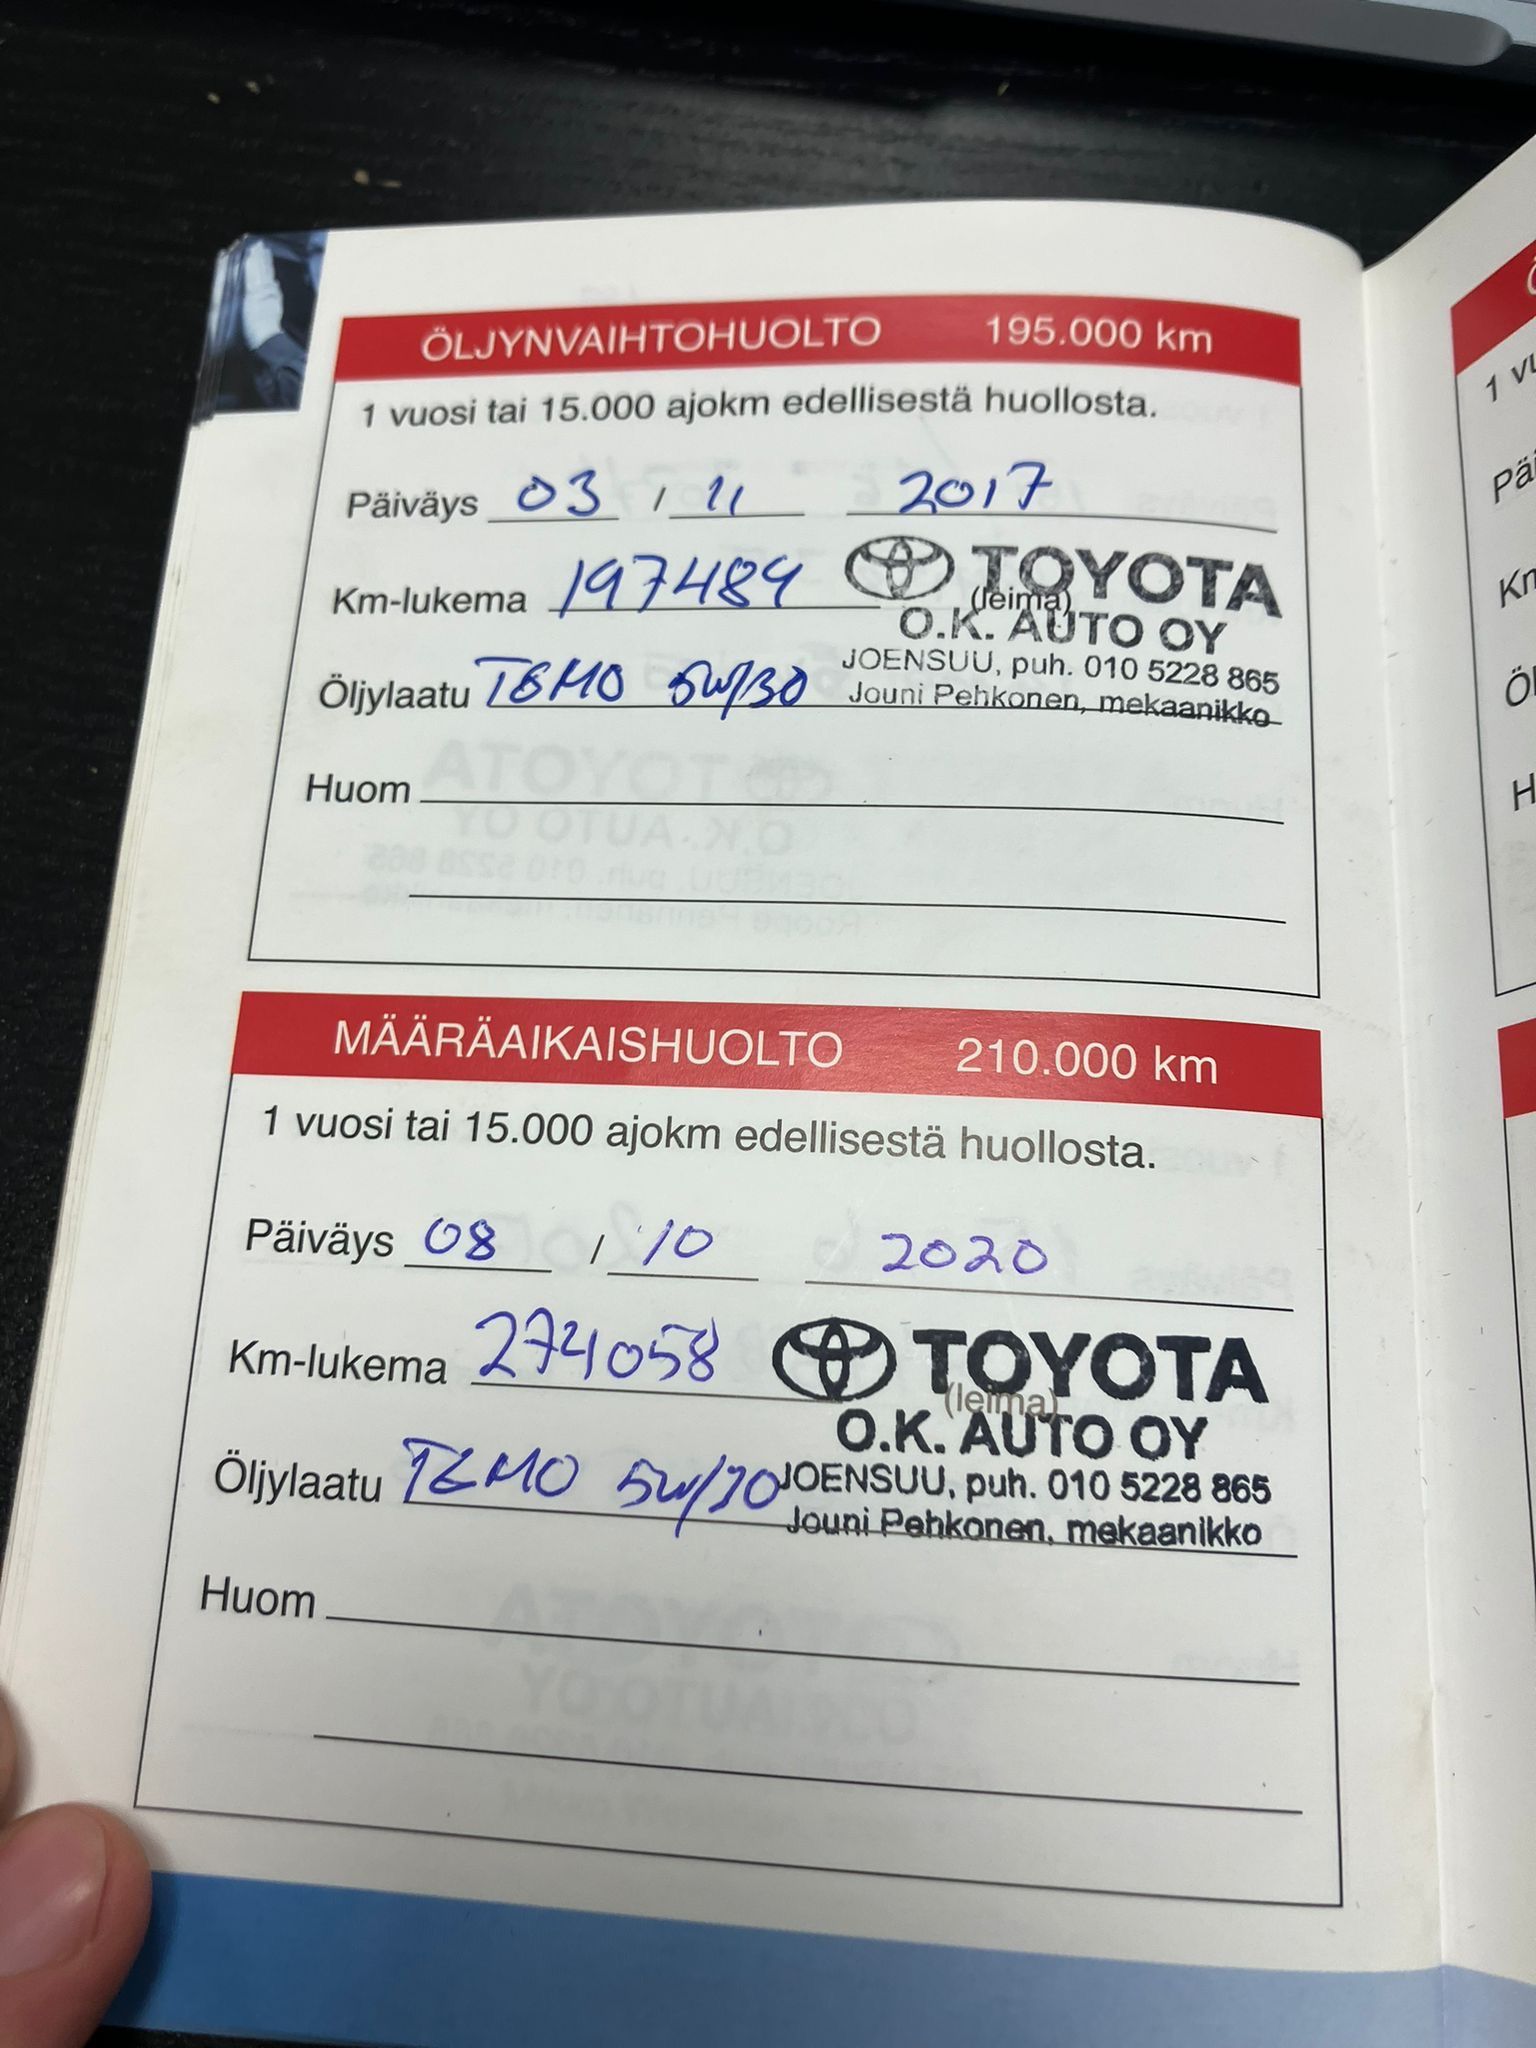 ÖLJYNVAIHTOHUOLTO 195.000 km
1 vuosi tai 15.000 ajokm edellisestä huollosta.
Päiväys 03 / 11 2017
TOYOTA
Km-lukema 197484 (leima)
O.K. AUTO OY
JOENSUU, puh. 010 5228 865
Öljylaatu TEMO 5W/30 Jouni Pehkonen, mekaanikko
Huom
MÄÄRÄAIKAISHUOLTO 210.000 km
1 vuosi tai 15.000 ajokm edellisestä huollosta.
Päiväys 08 / 10 2020
Km-lukema 274058 TOYOTA
(leima)
O.K. AUTO OY
Öljylaatu TEMO 5W/30 JOENSUU, puh. 010 5228 865
Jouni Pehkonen, mekaanikko
Huom